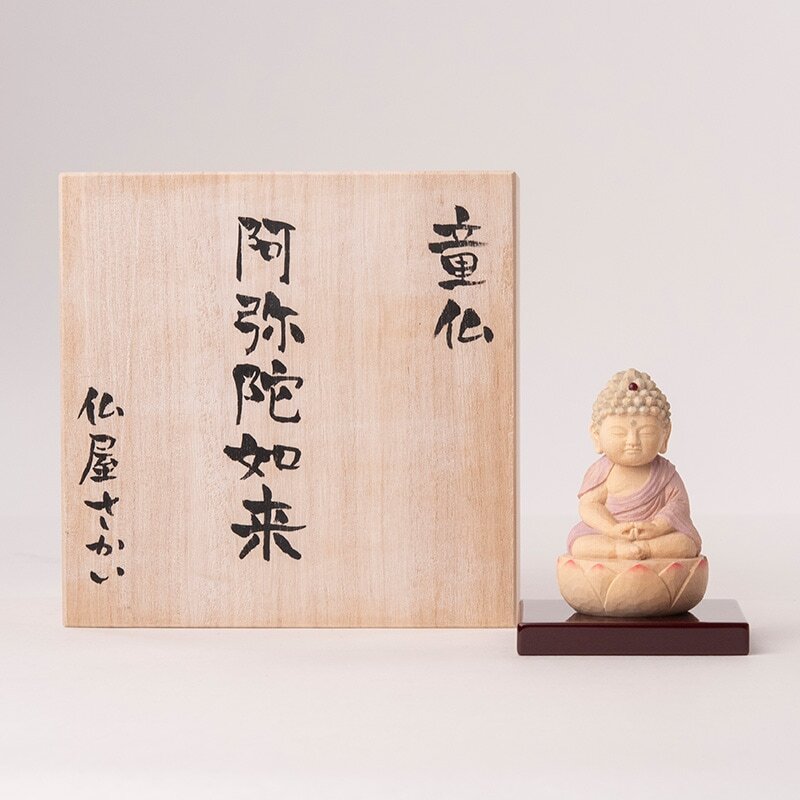 童仏
阿弥陀如来
仏屋さかい